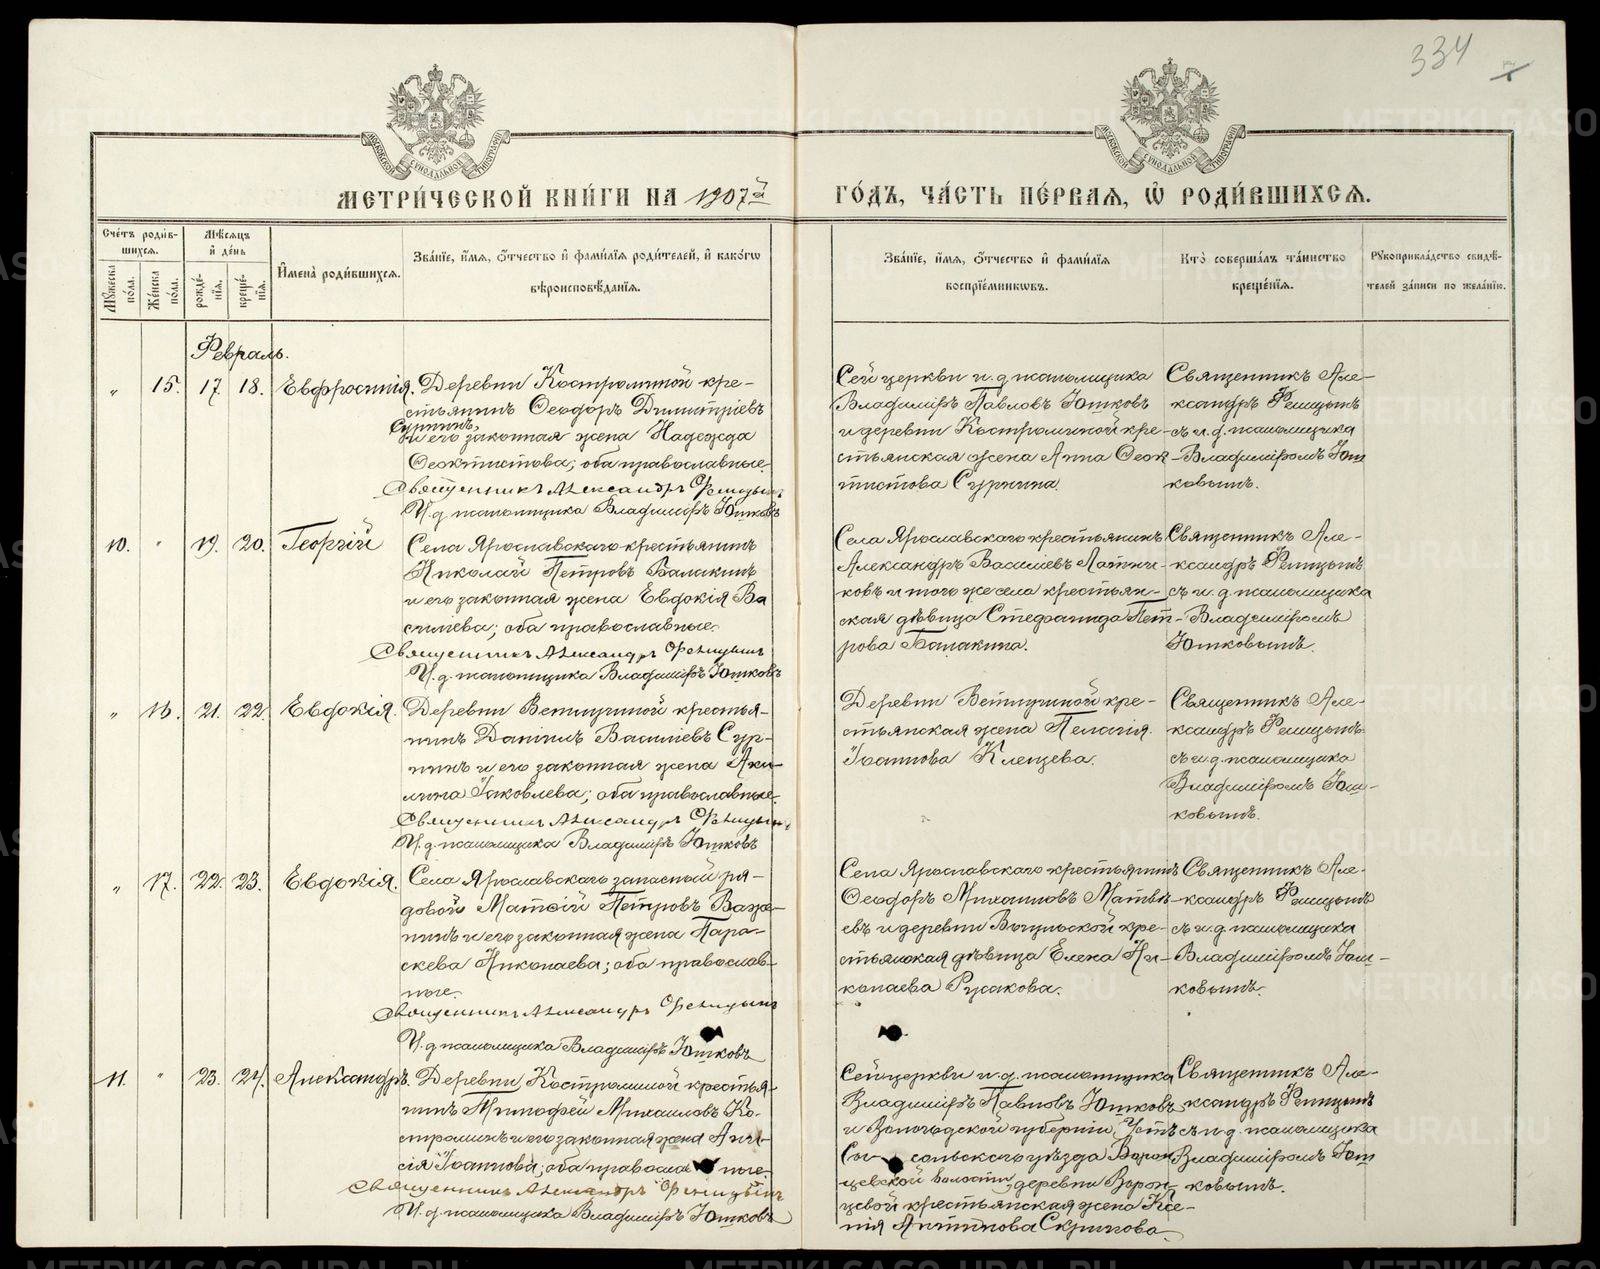 334
МОСКОВСКОЙ СѴНОДАЛЬНОЙ ТИПОГРАФІИ
МОСКОВСКОЙ СѴНОДАЛЬНОЙ ТИПОГРАФІИ
МЕТРИ́ЧЕСКОЙ КНИ́ГИ НА 1907й
ГО́ДЪ, ЧА́СТЬ ПЕ́РВАѦ, Ѡ҆ РОДИ́ВШИХСѦ.
Сче́тъ роди́в-
шихсѧ.
Мꙋжеска по́ла.
Же́нска по́ла.
Мѣ́сѧцъ
и҆ де́нь
рожде́-
нїѧ.
креще́-
нїѧ.
И҆мена̀ роди́вшихсѧ.
Зва́нїе, и҆́мѧ, ѻ҆́тчество и҆ фами́лїѧ роди́телей, и҆ како́гѡ
вѣроисповѣ́данїѧ.
Зва́нїе, и҆́мѧ, ѻ҆́тчество и҆ фами́лїѧ
воспрїе́мникѡвъ.
Кто̀ соверша́лъ та́инство
креще́нїѧ.
Рꙋкоприкла́дство свидѣ́-
телей за́писи по жела́нїю.
Февраль.
" 15. 17. 18. Евфросинія.
Деревни Костроминой кре-
стьянинъ Ѳеодоръ Димитріевъ
Суринъ,
и его законная жена Надежда
Ѳеоктистова; оба православные.
Священникъ Александръ Фелицынъ
И. д. псаломщика Владиміръ Юшковъ
Сей церкви и. д. псаломщика
Владиміръ Павловъ Юшковъ
и деревни Костроминой кре-
стьянская жена Анна Ѳеок-
тистова Сурнина.
Священникъ Але-
ксандръ Фелицынъ
съ и. д. псаломщика
Владиміромъ Юш
ковымъ.
10. " 19. 20. Георгій
Села Ярославскаго крестьянинъ
Николай Петровъ Балакинъ
и его законная жена Евдокія Ва
силіева; оба православные.
Священникъ Александръ Фелицынъ
И. д. псаломщика Владиміръ Юшковъ
Села Ярославскаго крестьянинъ
Александръ Василіевъ Латни-
ковъ и того же села крестьян-
ская дѣвица Стефанида Пет-
рова Балакина.
Священникъ Але-
ксандръ Фелицынъ
съ и. д. псаломщика
Владиміромъ
Юшковымъ.
" 16. 21. 22. Евдокія.
Деревни Ветлугиной крестья-
нинъ Даніилъ Василіевъ Сур-
нинъ и его законная жена Аки-
лина Іаковлева; оба православные.
Священникъ Александръ Фелицынъ
И. д. псаломщика Владиміръ Юшковъ
Деревни Ветлугиной кре-
стьянская жена Пелагія
Іоаннова Клепцева.
Священникъ Але-
ксандръ Фелицынъ
съ и. д. псаломщика
Владиміромъ Юш-
ковымъ.
" 17. 22. 23. Евдокія.
Села Ярославскаго запасный ря-
довой Матѳій Петровъ Важе-
нинъ и его законная жена Пара-
скева Николаева; оба православ-
ные.
Священникъ Александръ Фелицынъ
И. д. псаломщика Владиміръ Юшковъ
Села Ярославскаго крестьянинъ
Ѳеодоръ Михаиловъ Матвѣ-
евъ и деревни Бичульской кре-
стьянская дѣвица Елена Ни-
колаева Русакова.
Священникъ Але-
ксандръ Фелицынъ
съ и. д. псаломщика
Владиміромъ Юш-
ковымъ.
11. " 23. 24. Александръ.
Деревни Костроминой крестья-
нинъ Тимофей Михаиловъ Ко-
строминъ и его законная жена Ани-
сія Іоаннова; оба православные.
Священникъ Александръ Фелицынъ
И. д. псаломщика Владиміръ Юшковъ
Сей церкви и. д. псаломщика
Владиміръ Павловъ Юшковъ
и Вологодской губерніи, Усть
Сы сольскаго уѣзда Ворон
цевской волости, деревни Ворон-
цевой крестьянская жена Ксе-
нія Антипова Скрипова.
Священникъ Але-
ксандръ Фелицынъ
съ и. д. псаломщика
Владиміромъ Юш
ковымъ.
METRIKI.GASO-URAL.RU